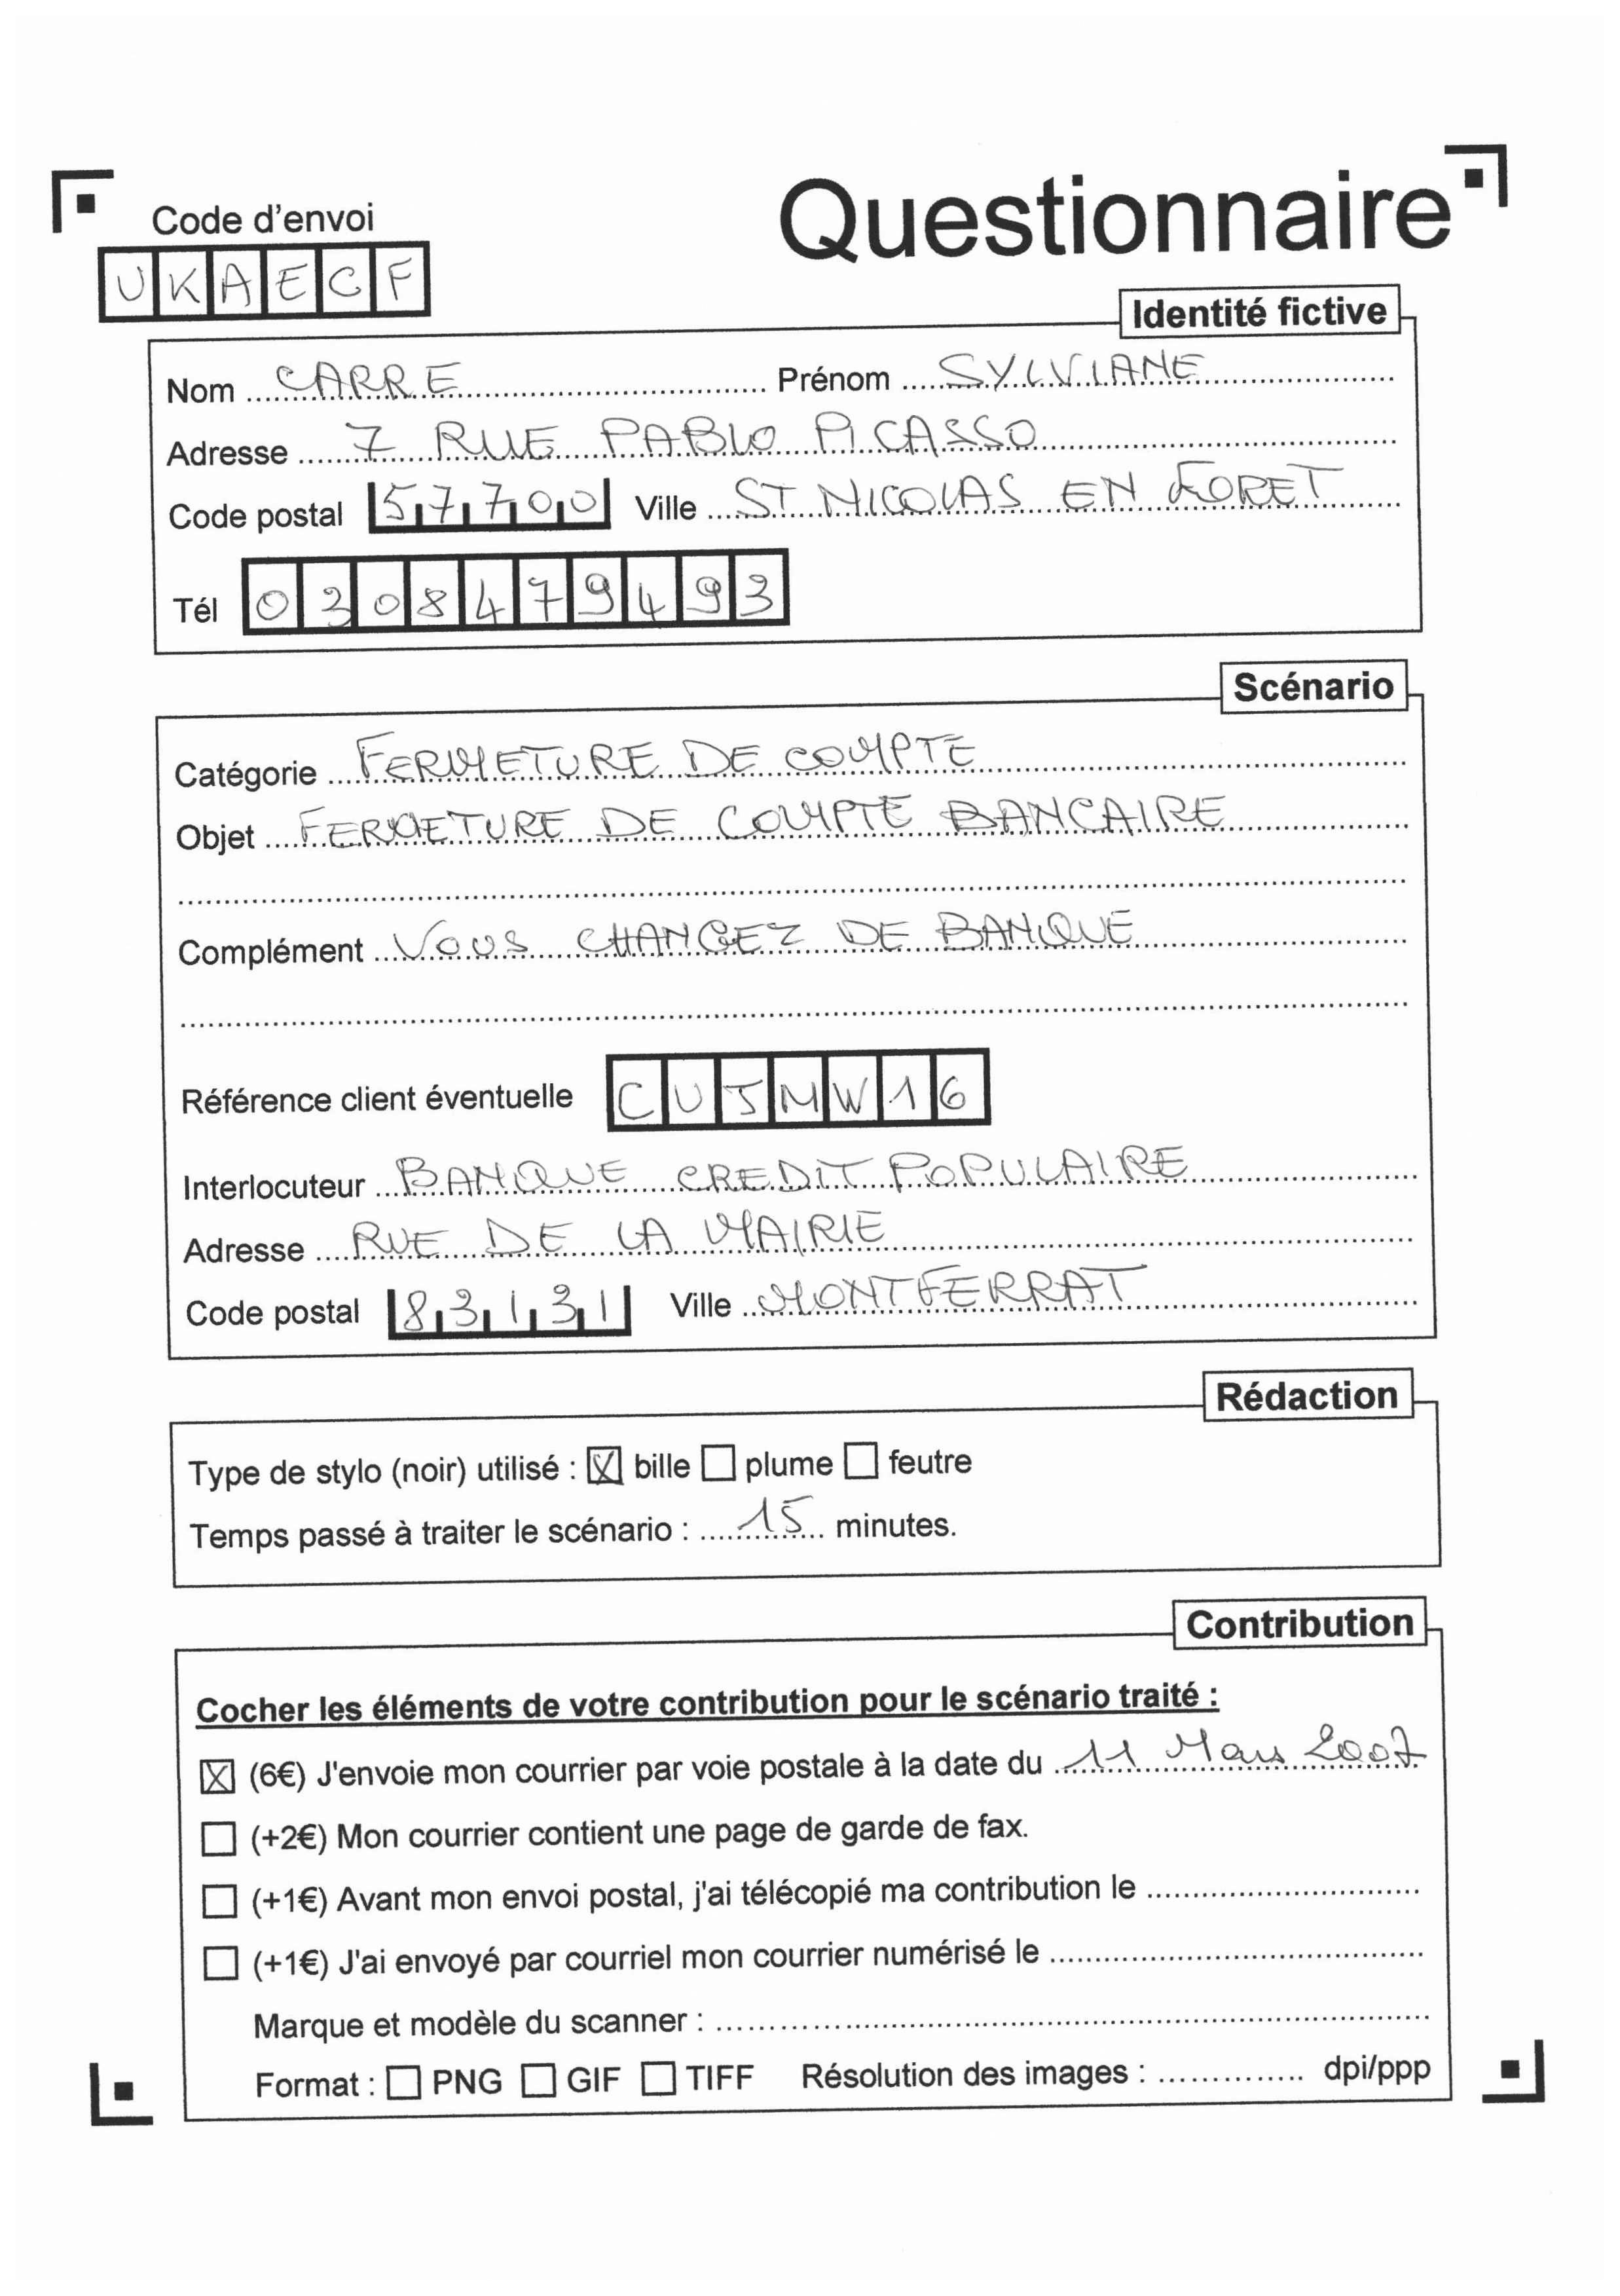 Questionnaire
Code d'envoi
UKAECF
Identité fictive
Nom CARRE Prénom SYLVIANE
Adresse 7 RUE PABLO PICASSO
Code postal 57700 Ville ST NICOLAS EN FORET
Tél 0308479493
Scénario
Catégorie FERMETURE DE COMPTE
Objet FERMETURE DE COMPTE BANCAIRE
Complément VOUS CHANGEZ DE BANQUE
Référence client éventuelle CUJMW16
Interlocuteur BANQUE CREDIT POPULAIRE
Adresse RUE DE LA MAIRIE
Code postal 83131 Ville MONTFERRAT
Rédaction
Type de stylo (noir) utilisé : ☒ bille ☐ plume ☐ feutre
Temps passé à traiter le scénario : 15 minutes.
Contribution
Cocher les éléments de votre contribution pour le scénario traité :
☒ (6€) J'envoie mon courrier par voie postale à la date du 11 Mars 2007
☐ (+2€) Mon courrier contient une page de garde de fax.
☐ (+1€) Avant mon envoi postal, j'ai télécopié ma contribution le
☐ (+1€) J'ai envoyé par courriel mon courrier numérisé le
Marque et modèle du scanner :
Format : ☐ PNG ☐ GIF ☐ TIFF Résolution des images : dpi/ppp